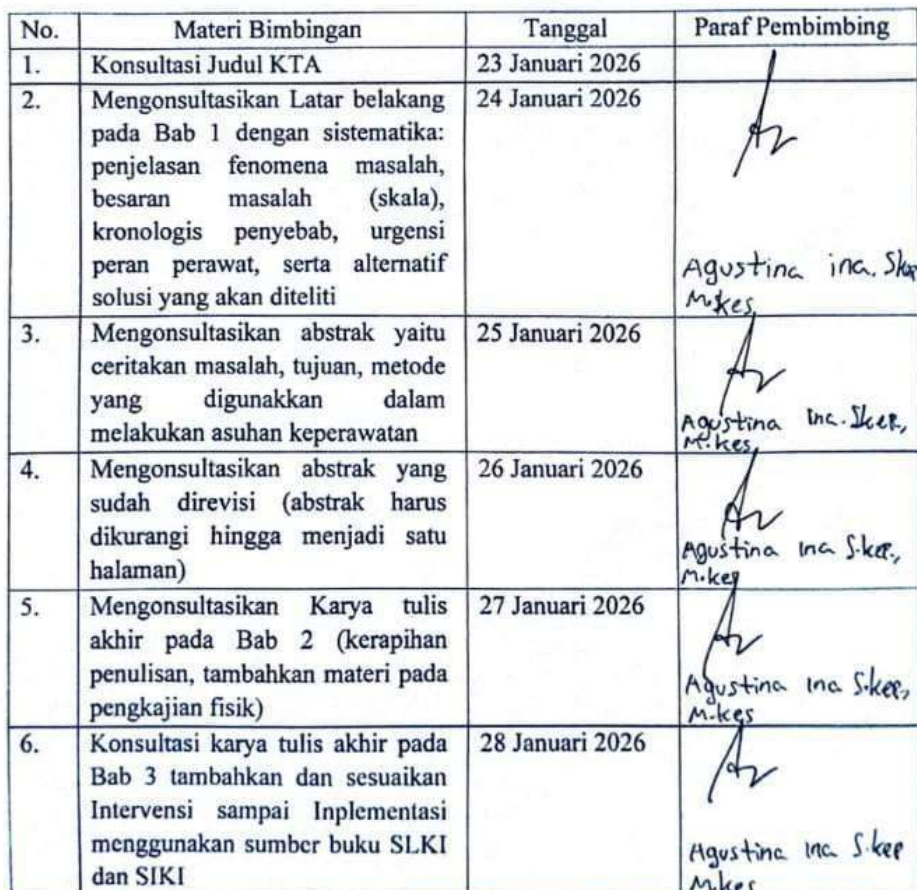 No. Materi Bimbingan Tanggal Paraf Pembimbing
1. Konsultasi Judul KTA 23 Januari 2026
2. Mengonsultasikan Latar belakang 24 Januari 2026
pada Bab 1 dengan sistematika:
penjelasan fenomena masalah,
besaran masalah (skala),
kronologis penyebab, urgensi
peran perawat, serta alternatif
solusi yang akan diteliti
Agustina ina. Skep
M.kes
3. Mengonsultasikan abstrak yaitu 25 Januari 2026
ceritakan masalah, tujuan, metode
yang digunakkan dalam
melakukan asuhan keperawatan
Agustina Ina. Skep,
M.kes
4. Mengonsultasikan abstrak yang 26 Januari 2026
sudah direvisi (abstrak harus
dikurangi hingga menjadi satu
halaman)
Agustina Ina S.kep.,
M.kes
5. Mengonsultasikan Karya tulis 27 Januari 2026
akhir pada Bab 2 (kerapihan
penulisan, tambahkan materi pada
pengkajian fisik)
Agustina Ina S.kep,
M.kes
6. Konsultasi karya tulis akhir pada 28 Januari 2026
Bab 3 tambahkan dan sesuaikan
Intervensi sampai Inplementasi
menggunakan sumber buku SLKI
dan SIKI
Agustina Ina S.kep
M.kes